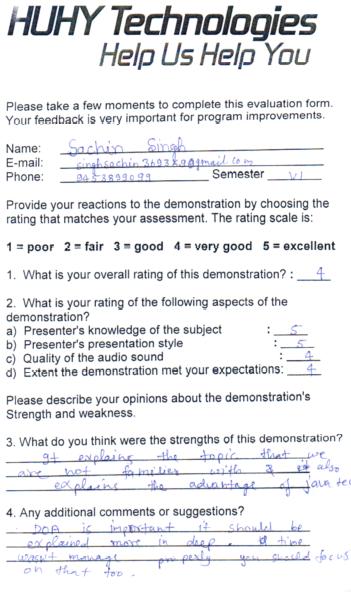 HUHY Technologies
Help Us Help You
Please take a few moments to complete this evaluation form.
Your feedback is very important for program improvements.
Name: Sachin Singh
E-mail:
Phone: Semester VI
Provide your reactions to the demonstration by choosing the
rating that matches your assessment. The rating scale is:
1 = poor 2 = fair 3 = good 4 = very good 5 = excellent
1. What is your overall rating of this demonstration? : 4
2. What is your rating of the following aspects of the
demonstration?
a) Presenter's knowledge of the subject : 5
b) Presenter's presentation style : 5
c) Quality of the audio sound : 4
d) Extent the demonstration met your expectations: 4
Please describe your opinions about the demonstration's
Strength and weakness.
3. What do you think were the strengths of this demonstration?
It explains the topic that we
are not familier with it also
explains the advantage of java
4. Any additional comments or suggestions?
DOA is important it should be
explained more in deep. time
wasn't manage properly you should focus
on that too.